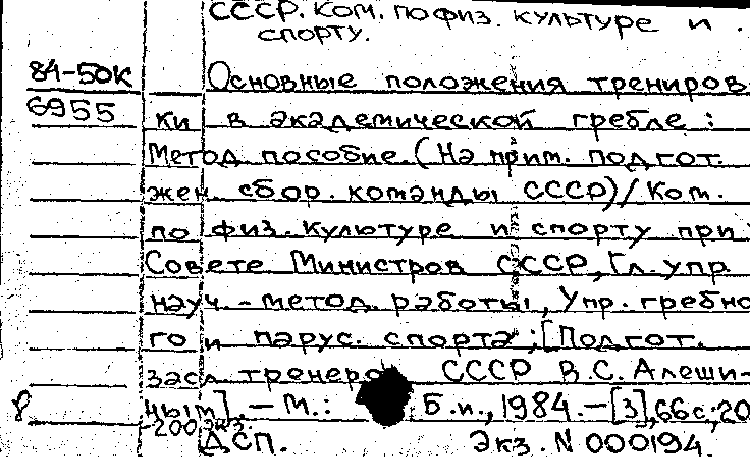 СССР. Ком. по физ. культуре и
спорту.
84-50К Основные положения трениров-
6955 ки в академической гребле:
Метод пособие. (На прим. подгот.
жен. сбор. команды СССР) / Ком.
по физ. культуре и спорту при
Совете Министров СССР, Гл. упр
науч.-метод. работы, Упр. гребно
го и парус. спорта; [Подгот.
засл тренеро СССР В.С. Алеши-
ным]. - М.: Б.и., 1984. - [3], 66с; 20
200 экз.
ДСП. Экз. N 000194.